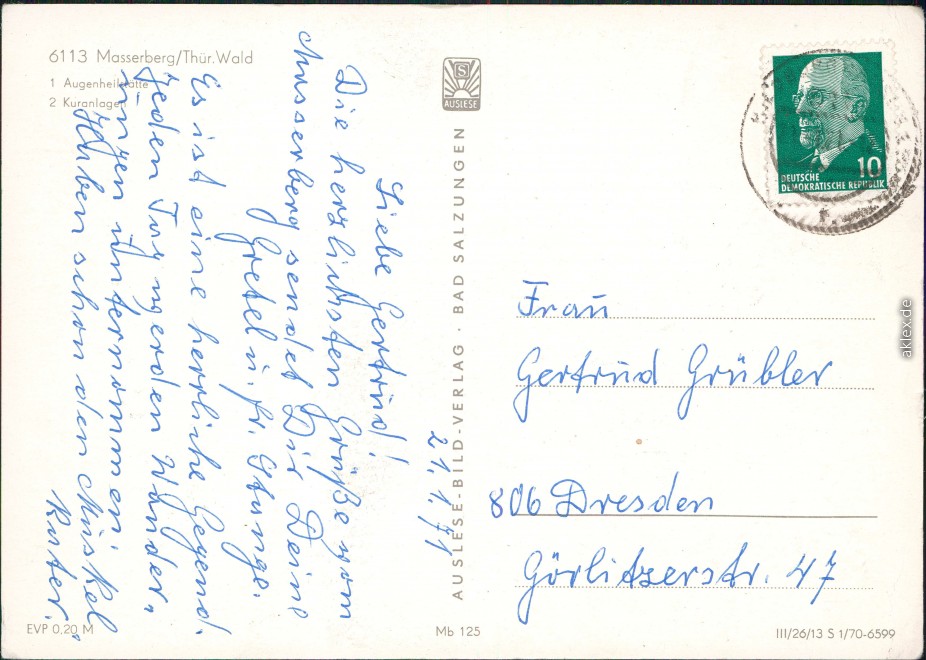 6113 Masserberg/Thür. Wald
1 Augenheilstätte
2 Kuranlagen
S
AUSLESE
AUSLESE-BILD-VERLAG · BAD SALZUNGEN
10
DEUTSCHE
DEMOKRATISCHE REPUBLIK
21.1.71
Liebe Gertrud!
Die herzlichsten Grüße vom
Masserberg sendet Dir Deine
Gretel u. fr. Stange.
Es ist eine herrliche Gegend.
Jeden Tag werden Wander„
ungen unternommen.
Haben schon den Muskel
kater.
Frau
Gertrud Grübler
806 Dresden
Görlitzerstr. 47
EVP 0,20 M
Mb 125
III/26/13 S 1/70-6599
aklex.de